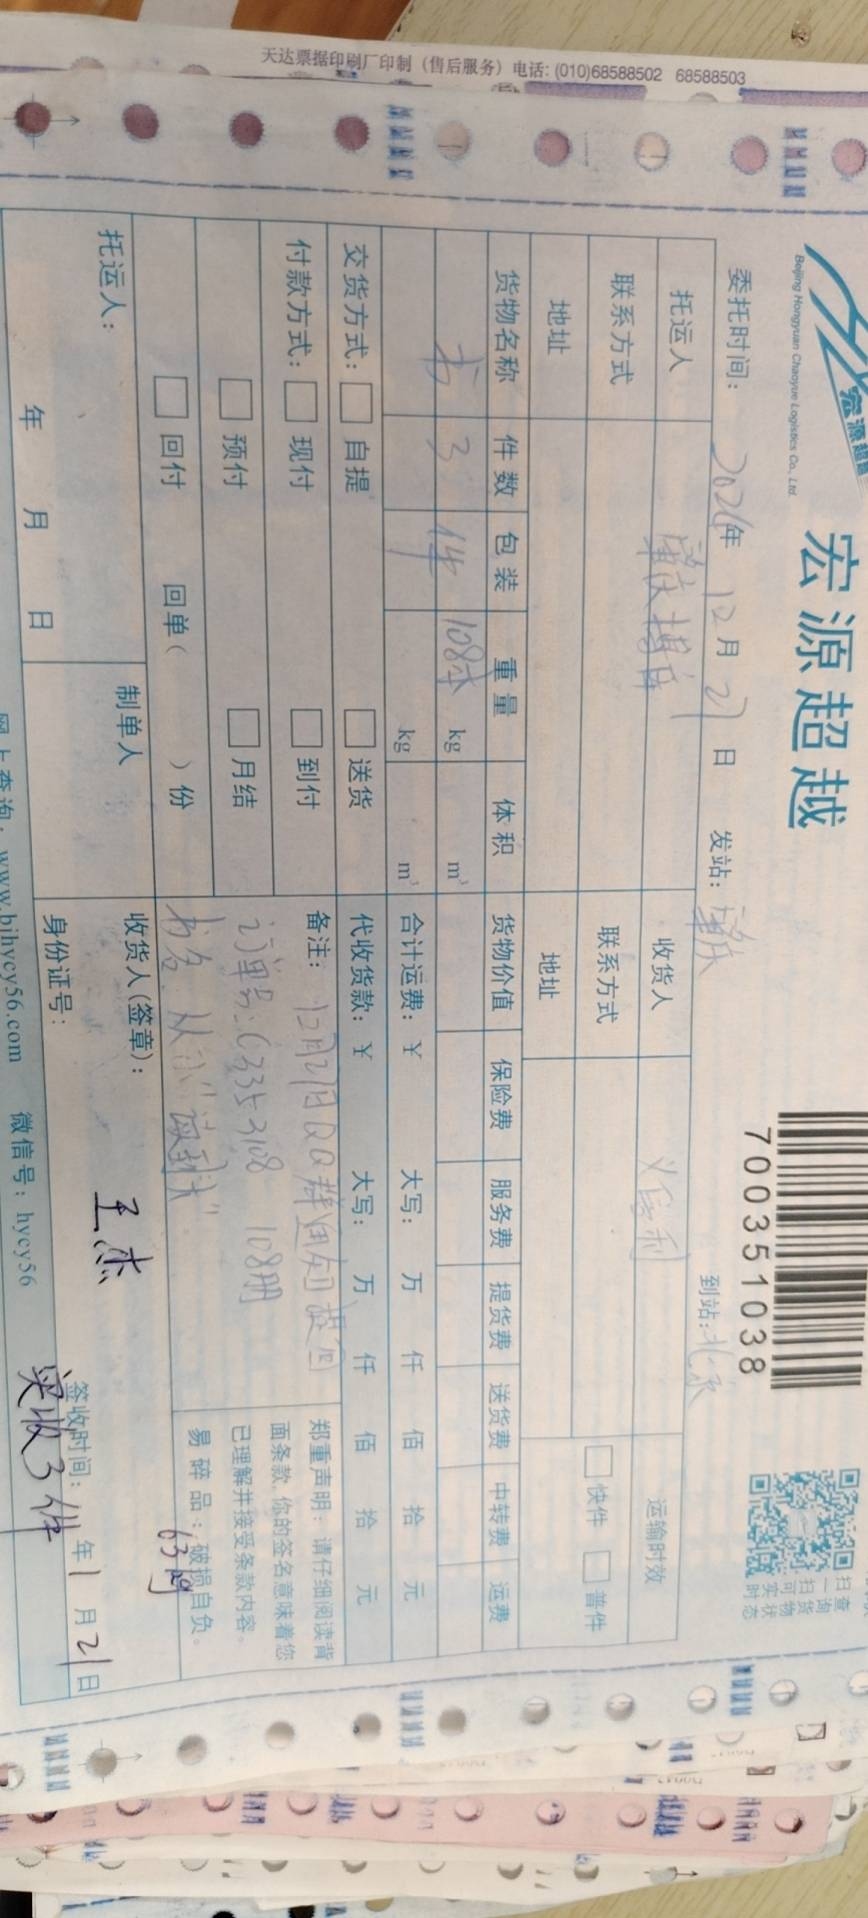 天达票据印刷厂印制（售后服务）电话: (010)68588502 68588503
宏源超越
Beijing Hongyuan Chaoyue Logistics Co., Ltd.
宏源超越
7003518038
委托时间： 年 12 月 21 日 发站：重庆 到站：北京
托运人 重庆 收货人 运输时效
联系方式 联系方式 快件 普件
地址 地址
货物名称 件数 包装 重量 体积 货物价值 保险费 服务费 提货费 送货费 中转费 运费
书 3 件 108本 kg m³
kg m³ 合计运费：￥ 大写： 万 仟 佰 拾 元
交货方式： 自提 送货 代收货款：￥ 大写： 万 仟 佰 拾 元
付款方式： 现付 到付 备注：12月21日QQ群通知提回
预付 月结 108册
回付 回单（ ）份 书名：
郑重声明：请仔细阅读背
面条款，你的签名意味着您
已理解并接受条款内容。
易碎品：破损自负。
托运人： 制单人 收货人(签章)： 王杰
年 月 日 身份证号： 签收时间： 年 1 月 21 日
实收3件
www.bjhycy56.com 微信号：hycy56